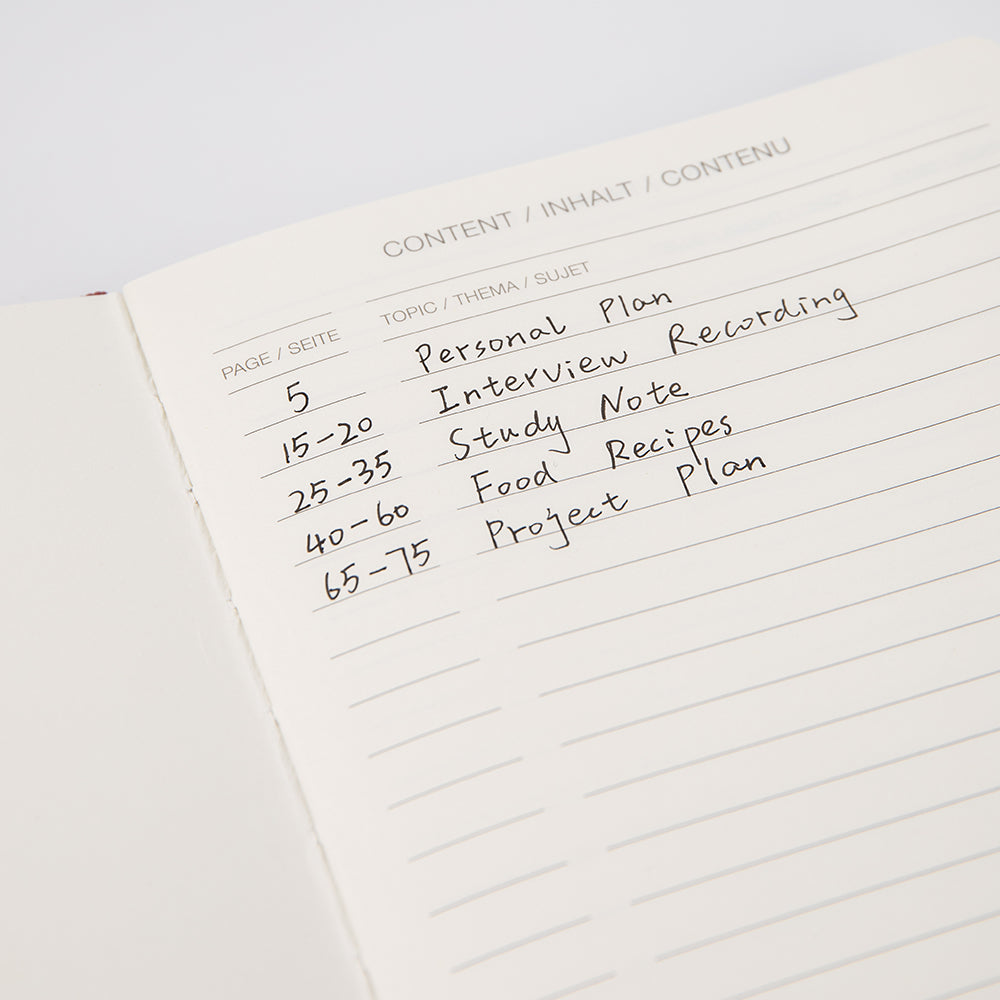 CONTENT / INHALT / CONTENU
PAGE / SEITE TOPIC / THEMA / SUJET
5 Personal Plan
15-20 Interview Recording
25-35 Study Note
40-60 Food Recipes
65-75 Project Plan